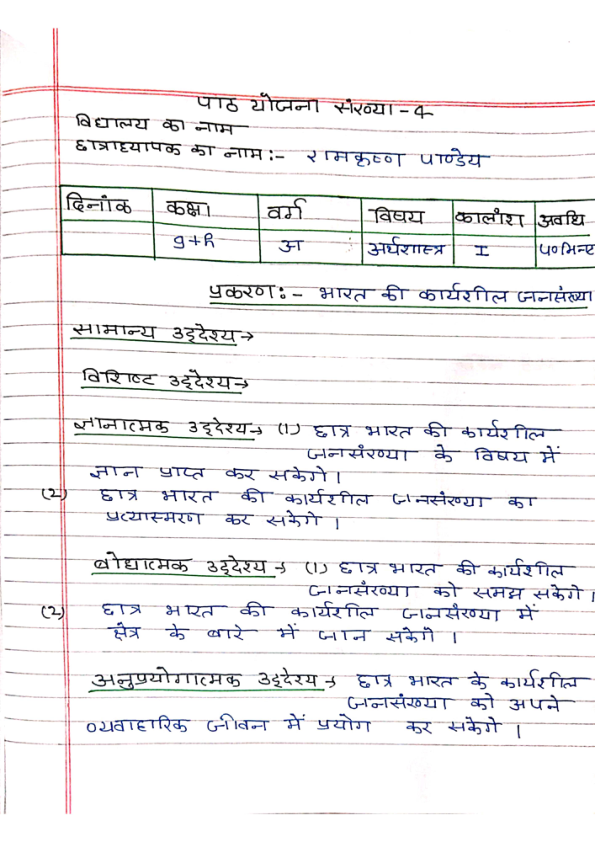 पाठ योजना संख्या-4
विद्यालय का नाम
छात्राध्यापक का नाम:- रामकृष्ण पाण्डेय
दिनांक कक्षा वर्ग विषय कालांश अवधि
9th अ अर्थशास्त्र I ५० मिनट
प्रकरण:- भारत की कार्यशील जनसंख्या
सामान्य उद्देश्य→
विशिष्ट उद्देश्य→
ज्ञानात्मक उद्देश्य→ (1) छात्र भारत की कार्यशील
जनसंख्या के विषय में
ज्ञान प्राप्त कर सकेगे।
(2) छात्र भारत की कार्यशील जनसंख्या का
प्रत्यास्मरण कर सकेगे।
बोधात्मक उद्देश्य→ (1) छात्र भारत की कार्यशील
जनसंख्या को समझ सकेगे।
(2) छात्र भारत की कार्यशील जनसंख्या में
क्षेत्र के बारे में जान सकेगे।
अनुप्रयोगात्मक उद्देश्य→ छात्र भारत के कार्यशील
जनसंख्या को अपने
व्यवाहारिक जीवन में प्रयोग कर सकेगे।